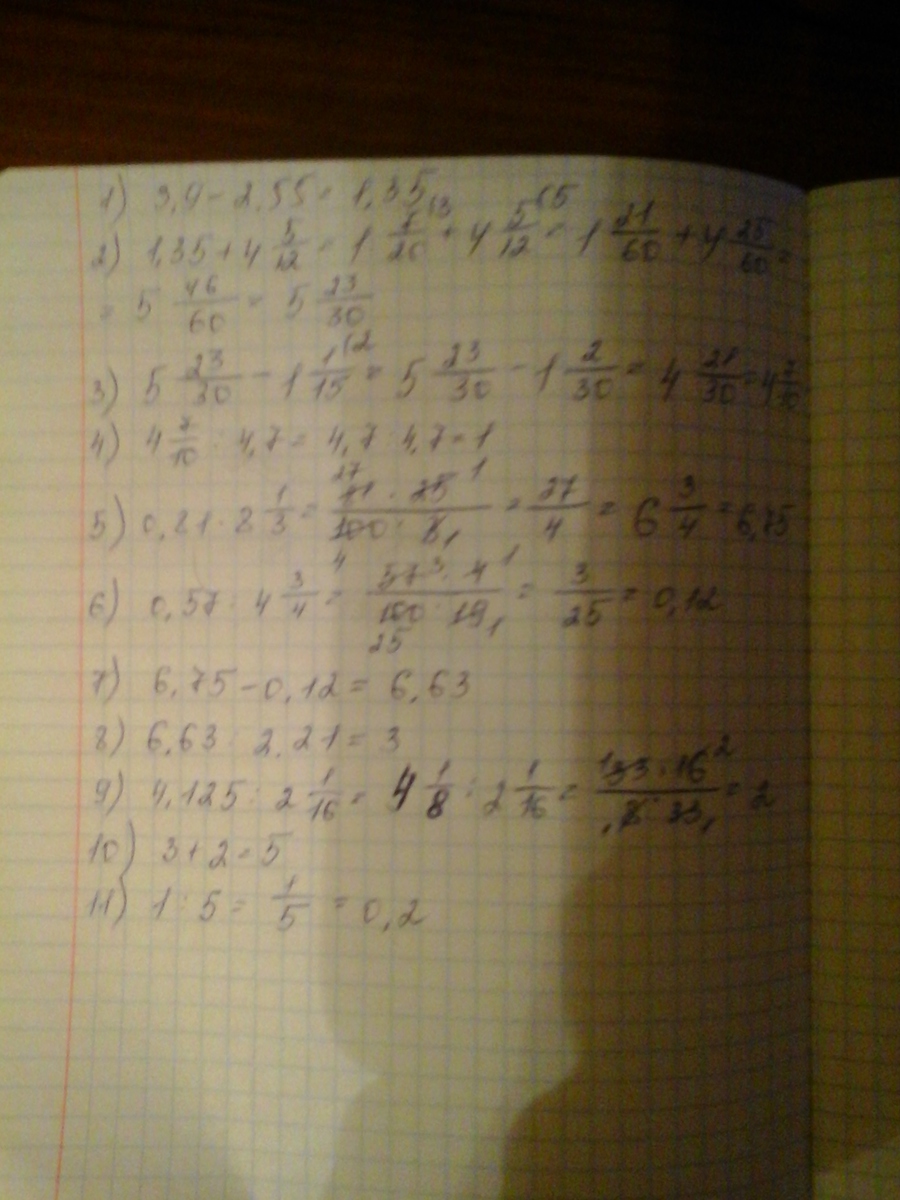 1) 3,9 - 2,55 = 1,35
2) 1,35 + 4 5/12 = 1 7/20 (3 + 4 5/12 (5 = 1 21/60 + 4 25/60 =
= 5 46/60 = 5 23/30
3) 5 23/30 - 1 1/15 (2 = 5 23/30 - 1 2/30 = 4 21/30 = 4 7/10
4) 4 7/10 : 4,7 = 4,7 : 4,7 = 1
5) 0,81 : 3 1/3 = 27 81 · 25 1 / 100 4 · 3 1 = 27/4 = 6 3/4 = 6,75
6) 0,57 : 4 3/4 = 57 3 · 4 1 / 100 25 · 19 1 = 3/25 = 0,12
7) 6,75 - 0,12 = 6,63
8) 6,63 : 2,21 = 3
9) 4,125 : 2 1/16 = 4 1/8 : 2 1/16 = 1 33 · 16 2 / 1 8 · 33 1 = 2
10) 3 + 2 = 5
11) 1 : 5 = 1/5 = 0,2